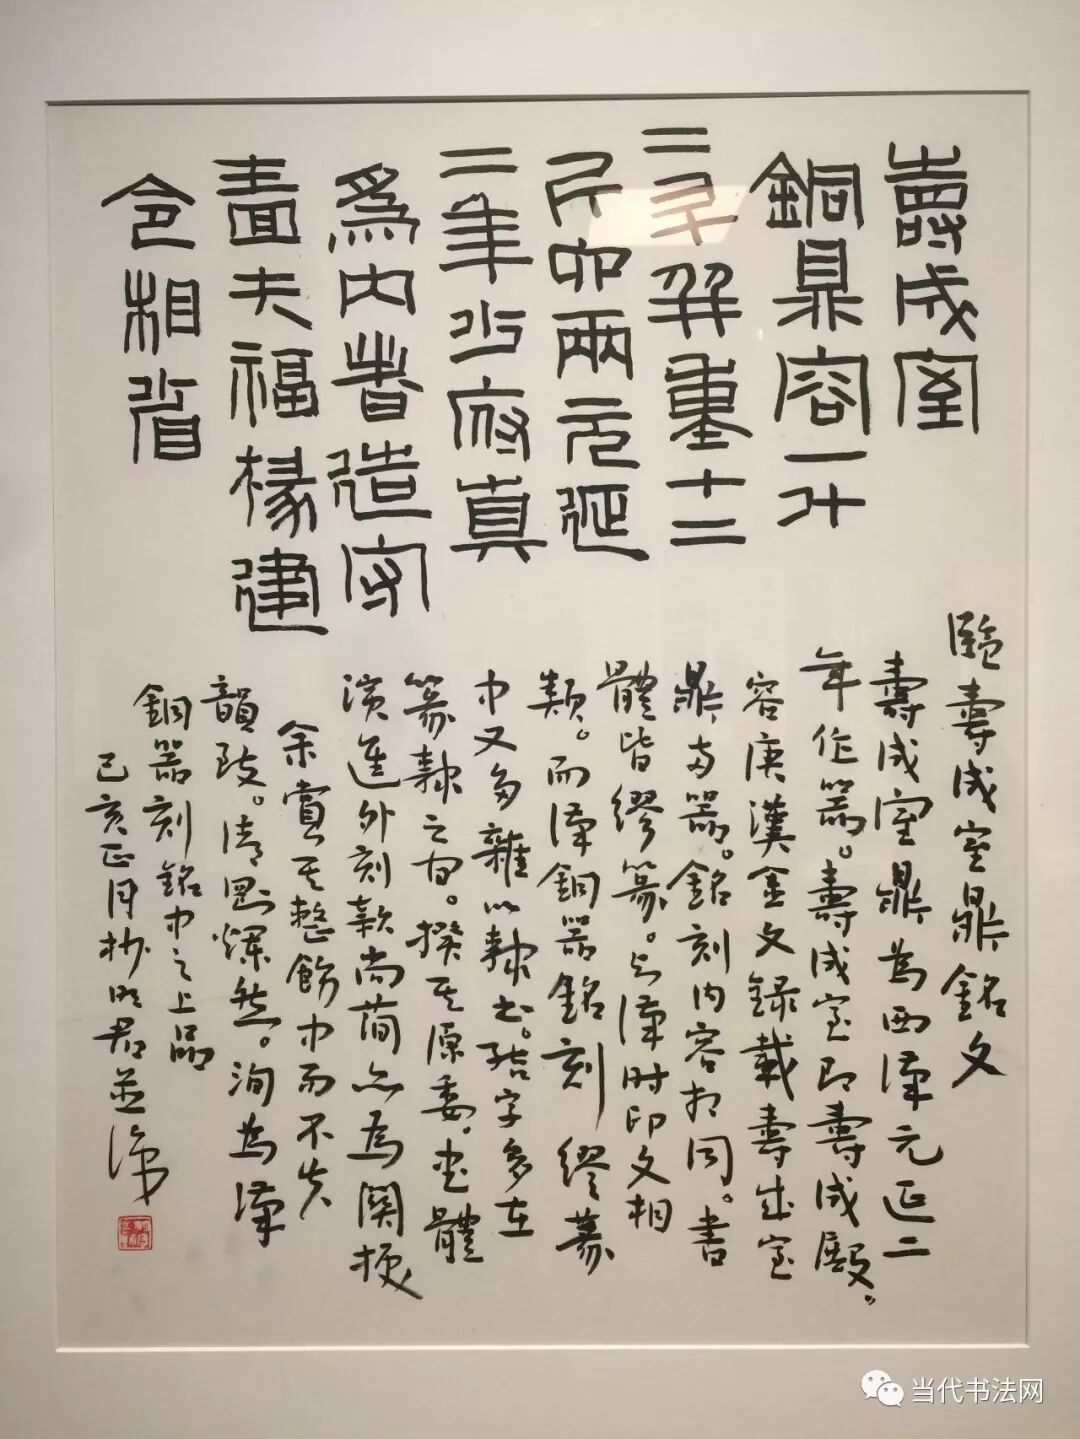 壽成室
銅鼎容一斗
二升并重十二
斤卯兩元延
二年少府真
爲內者造守
嗇夫福掾建
令相省
臨壽成室鼎銘文
壽成室鼎為西漢元延二
年作器。壽成室即壽成殿。
容庚漢金文錄載壽成室
鼎兩器。銘刻內容相同。書
體皆繆篆。與漢時印文相
類。而漢銅器銘刻繆篆
中又多雜以隸書。結字多在
篆隸之間。揆其原委。書體
演進外刻款尚簡亦為關梗
余賞其整飭中而不失
韻致。清剛爛然。洵為漢
銅器刻銘中之上品
己亥正月抄明君並識
当代书法网